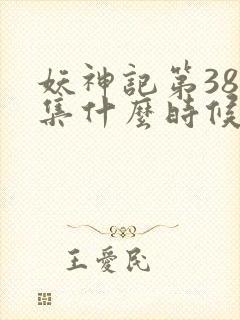 妖神記第38
集什麼時候
王愛民